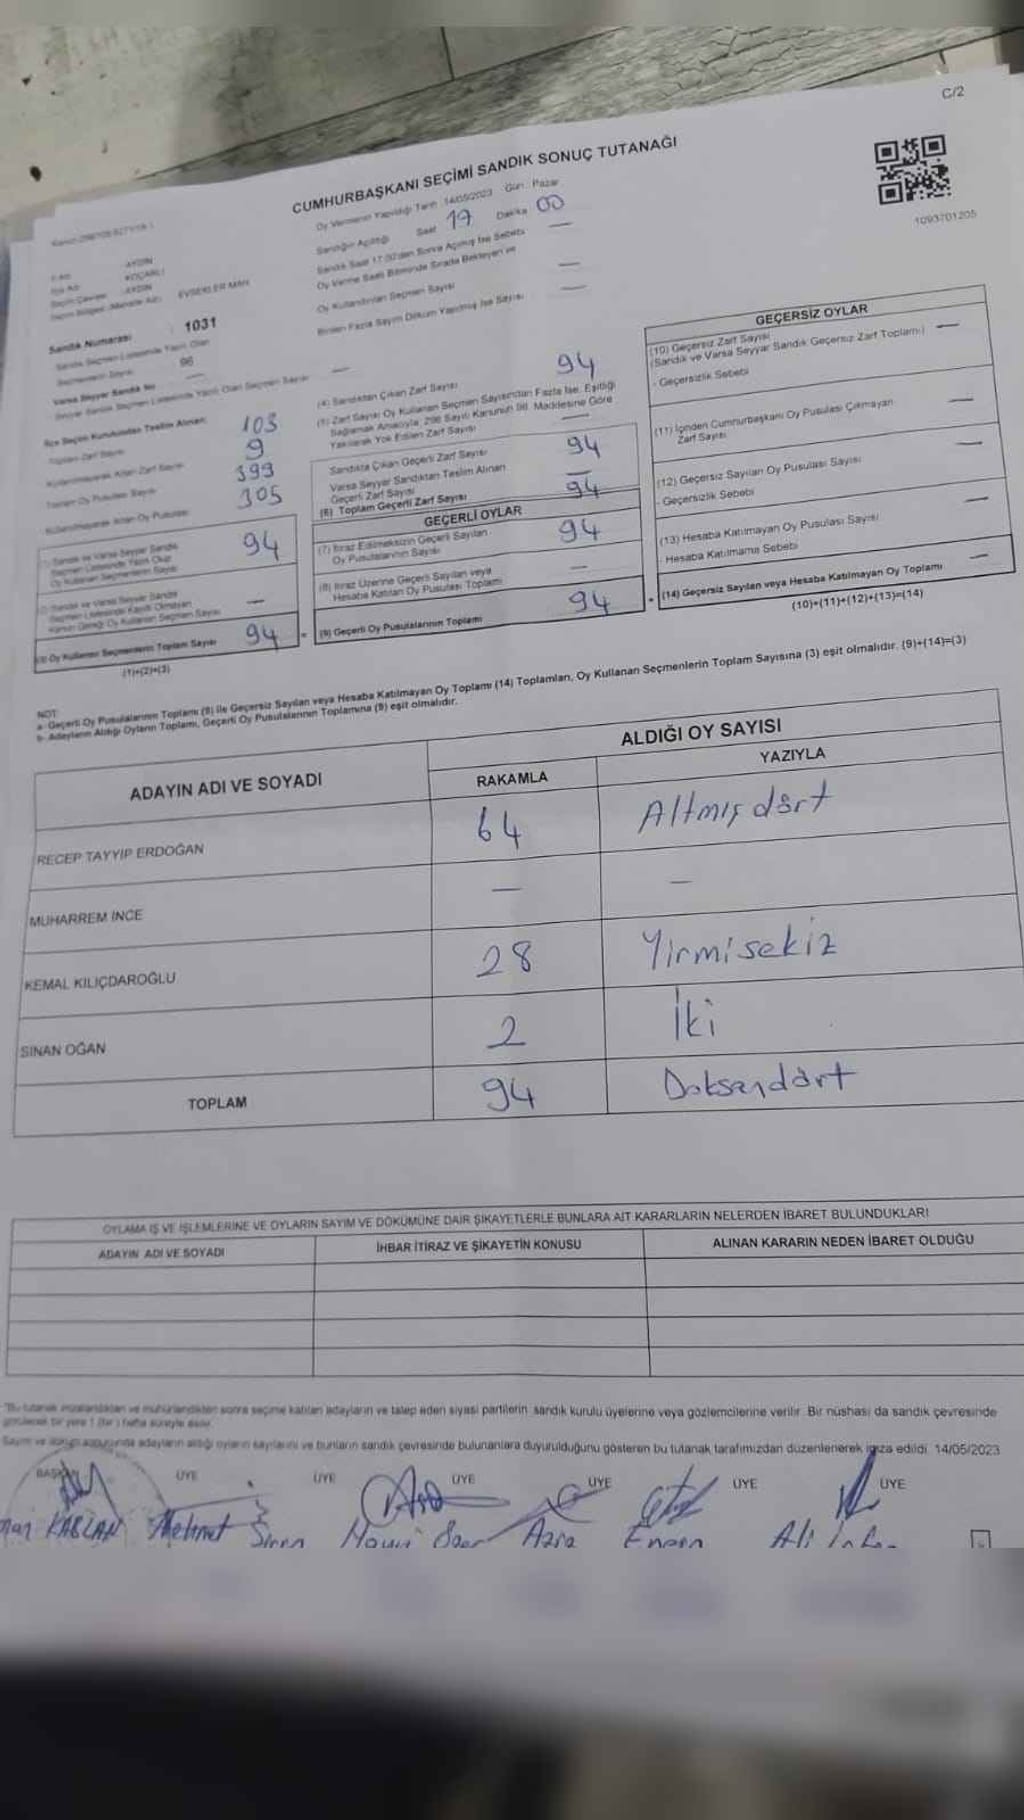 C/2
CUMHURBAŞKANI SEÇİMİ SANDIK SONUÇ TUTANAĞI
1093701205
Oy Vermenin Yapıldığı Tarih 14/05/2023 Gün: Pazar
Sandığın Açıldığı Saat 17 Dakika 00
Sandık Saat 17.00'den Sonra Açılmış İse Sebebi —
Oy Verme Saati Bitiminde Sırada Bekleyen ve
Oy Kullandırılan Seçmen Sayısı —
Birden Fazla Sayım Döküm Yapılmış İse Sayısı —
AYDIN
KOÇARLI
AYDIN
EVSEKLER MAH.
Sandık Numarası : 1031
Sandık Seçmen Listesinde Yazılı Olan
Seçmenlerin Sayısı 96
Varsa Seyyar Sandık No —
Seyyar Sandık Seçmen Listesinde Yazılı Olan Seçmen Sayısı —
İlçe Seçim Kurulundan Teslim Alınan
Toplam Zarf Sayısı 103
Kullanılmayarak Artan Zarf Sayısı 9
Toplam Oy Pusulası Sayısı 399
Kullanılmayarak Artan Oy Pusulası 305
(1) Sandık ve Varsa Seyyar Sandık
Seçmen Listesinde Yazılı Olup
Oy Kullanan Seçmenlerin Sayısı 94
(2) Sandık ve Varsa Seyyar Sandık
Seçmen Listesinde Kayıtlı Olmayan
Kanun Gereği Oy Kullanan Seçmen Sayısı —
(3) Oy Kullanan Seçmenlerin Toplam Sayısı 94
(1)+(2)=(3)
(4) Sandıktan Çıkan Zarf Sayısı 94
(5) Zarf Sayısı Oy Kullanan Seçmen Sayısından Fazla İse, Eşitliği
Sağlamak Amacıyla, 298 Sayılı Kanunun 98. Maddesine Göre
Yakılarak Yok Edilen Zarf Sayısı —
Sandıkta Çıkan Geçerli Zarf Sayısı 94
Varsa Seyyar Sandıktan Teslim Alınan
Geçerli Zarf Sayısı —
(6) Toplam Geçerli Zarf Sayısı 94
GEÇERLİ OYLAR
(7) İtiraz Edilmeksizin Geçerli Sayılan
Oy Pusulalarının Sayısı 94
(8) İtiraz Üzerine Geçerli Sayılan veya
Hesaba Katılan Oy Pusulası Toplamı —
(9) Geçerli Oy Pusulalarının Toplamı 94
GEÇERSİZ OYLAR
(10) Geçersiz Zarf Sayısı
(Sandık ve Varsa Seyyar Sandık Geçersiz Zarf Toplamı) —
- Geçersizlik Sebebi
(11) İçinden Cumhurbaşkanı Oy Pusulası Çıkmayan
Zarf Sayısı —
(12) Geçersiz Sayılan Oy Pusulası Sayısı —
- Geçersizlik Sebebi
(13) Hesaba Katılmayan Oy Pusulası Sayısı —
Hesaba Katılmama Sebebi
(14) Geçersiz Sayılan veya Hesaba Katılmayan Oy Toplamı —
(10)+(11)+(12)+(13)=(14)
NOT:
a- Geçerli Oy Pusulalarının Toplamı (9) ile Geçersiz Sayılan veya Hesaba Katılmayan Oy Toplamı (14) Toplamları, Oy Kullanan Seçmenlerin Toplam Sayısına (3) eşit olmalıdır. (9)+(14)=(3)
b- Adayların Aldığı Oyların Toplamı, Geçerli Oy Pusulalarının Toplamına (9) eşit olmalıdır.
ADAYIN ADI VE SOYADI
ALDIĞI OY SAYISI
RAKAMLA YAZIYLA
RECEP TAYYIP ERDOĞAN 64 Altmış dört
MUHARREM İNCE — —
KEMAL KILIÇDAROĞLU 28 Yirmi sekiz
SİNAN OĞAN 2 İki
TOPLAM 94 Doksandört
OYLAMA İŞ VE İŞLEMLERİNE VE OYLARIN SAYIM VE DÖKÜMÜNE DAİR ŞİKAYETLERLE BUNLARA AİT KARARLARIN NELERDEN İBARET BULUNDUKLARI
ADAYIN ADI VE SOYADI İHBAR İTİRAZ VE ŞİKAYETİN KONUSU ALINAN KARARIN NEDEN İBARET OLDUĞU
"Bu tutanak imzalandıktan ve mühürlendikten sonra seçime katılan adayların ve talep eden siyasi partilerin sandık kurulu üyelerine veya gözlemcilerine verilir. Bir nüshası da sandık çevresinde
görülecek bir yere 1 (bir) hafta süreyle asılır.
Sayım ve döküm sonucunda adayların aldığı oyların sayılarını ve bunların sandık çevresinde bulunanlara duyurulduğunu gösteren bu tutanak tarafımızdan düzenlenerek imza edildi. 14/05/2023
BAŞKAN ÜYE ÜYE ÜYE ÜYE ÜYE ÜYE
KABLAN Mehmet Aziz Ali